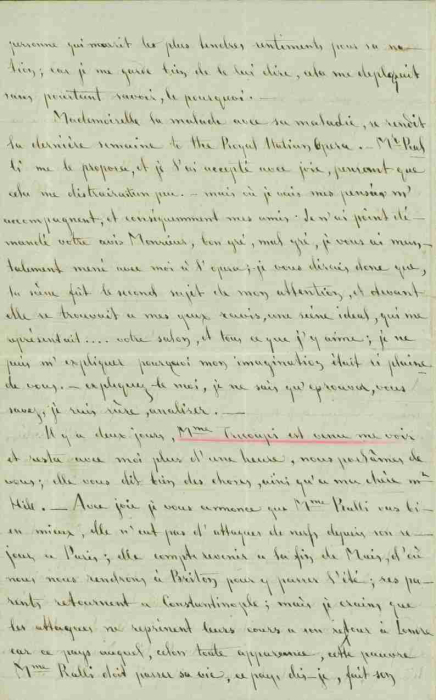 personne qui nourrit les plus tendres sentiments pour sa na-
tion; car je me garde bien de le lui dire, cela me deplaquit
sans pourtant savoir, le pourquoi. —
Mademoiselle la malade avec sa maladie, se rendit
la dernière semaine to the Royal Italian Opera. — Mr Ral
li me le proposa, et je l'ai accepté avec joie, pensant que
cela me distrairait un peu. — mais où je vais mes pensées m'
accompagnent, et conséquemment mes amis: Je n'ai point de-
mandé votre avis Monsieur, bon gré, mal gré, je vous ai men-
talement mené avec moi à l'opera; je vous dirais donc que,
la scène fût le second sujet de mon attention, et devant
elle se trouvait a mes yeux ravis, une scène ideal, qui me
représentait.... votre salon, et tous ce que j'y aime; je ne
puis m'expliquer pourquoi mon imagination était si pleine
de vous. — expliquez-le moi, je ne sais qu'éprouver, vous
savez, je suis analiser. —
Il y a deux jours, Mme est venue me voir
et resta avec moi plus d'une heure, nous parlâmes de
vous; elle vous dit bien des choses, ainsi qu'a ma chère
Hill. — Avec joie je vous annonce que Mme Ralli vas bi-
en mieux, elle n'eut pas d'attaques de nerfs depuis son se-
jour a Paris; elle compte revenir a la fin de Mais, d'où
nous nous rendrons à Briton pour y passer l'été; ses pa-
rents retournent a Constantinople; mais je crains que
les attaques ne reprenent leurs cours a son retour à Londre
car ce pays auquel, selon toute apparence, cette pauvre
Mme Ralli doit passer sa vie, ce pays dis-je, fait son